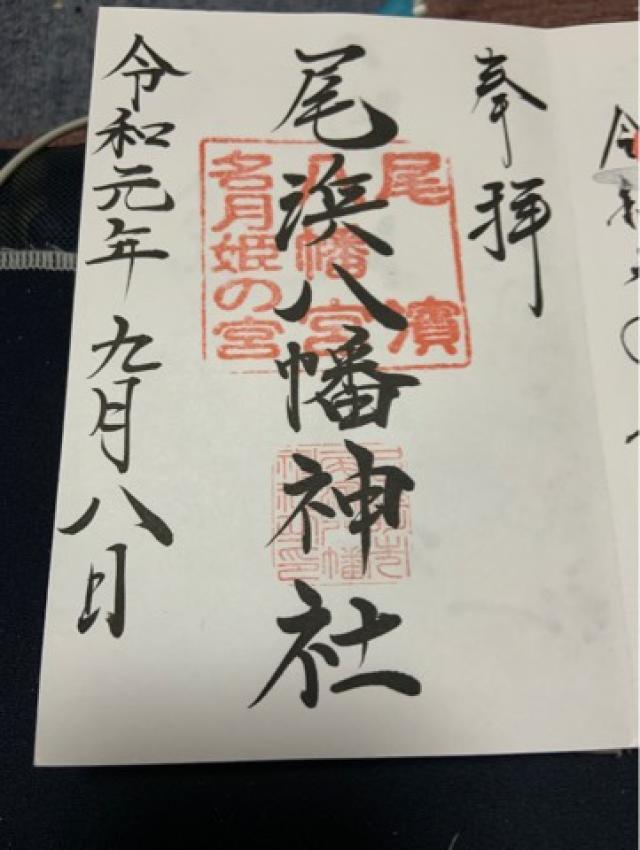 奉拝
尾浜八幡神社
尾濱
八幡宮
名月姫の宮
令和元年九月八日